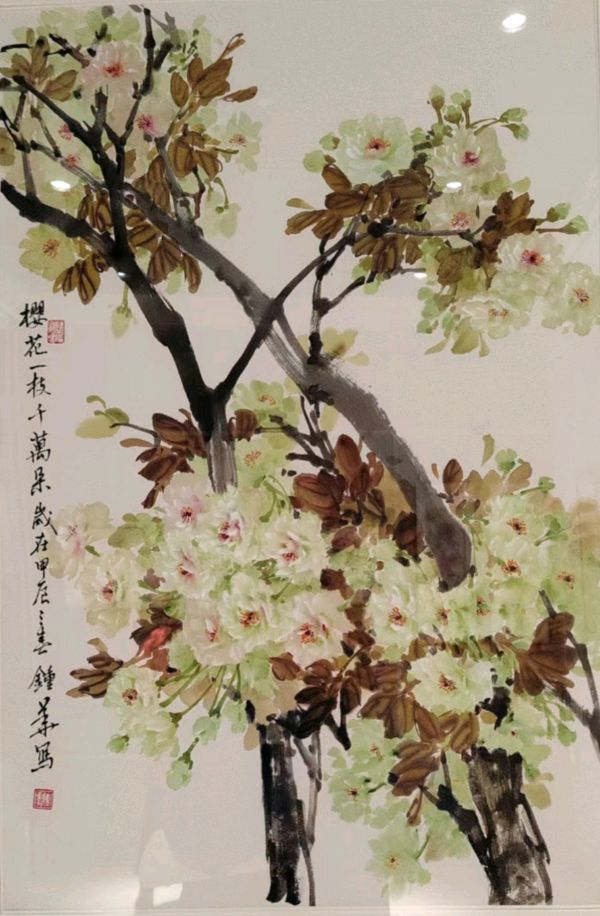 櫻花一枝千萬朵歲在甲辰之春鍾華寫